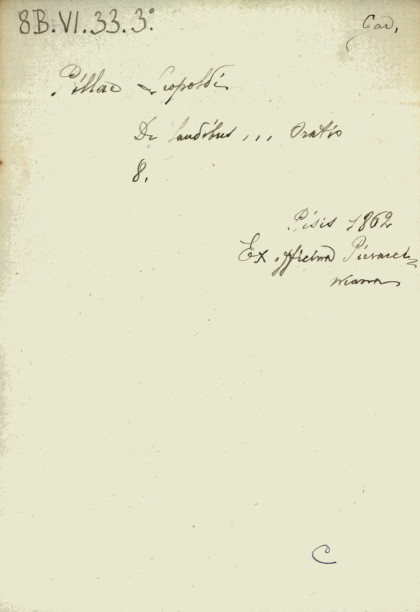 8B.VI.33.3°
Cad,
Pillae Leopoldi
De laudibus ... Oratio
8.
Pisis 1862
Ex officina Pieracci-
niana
C